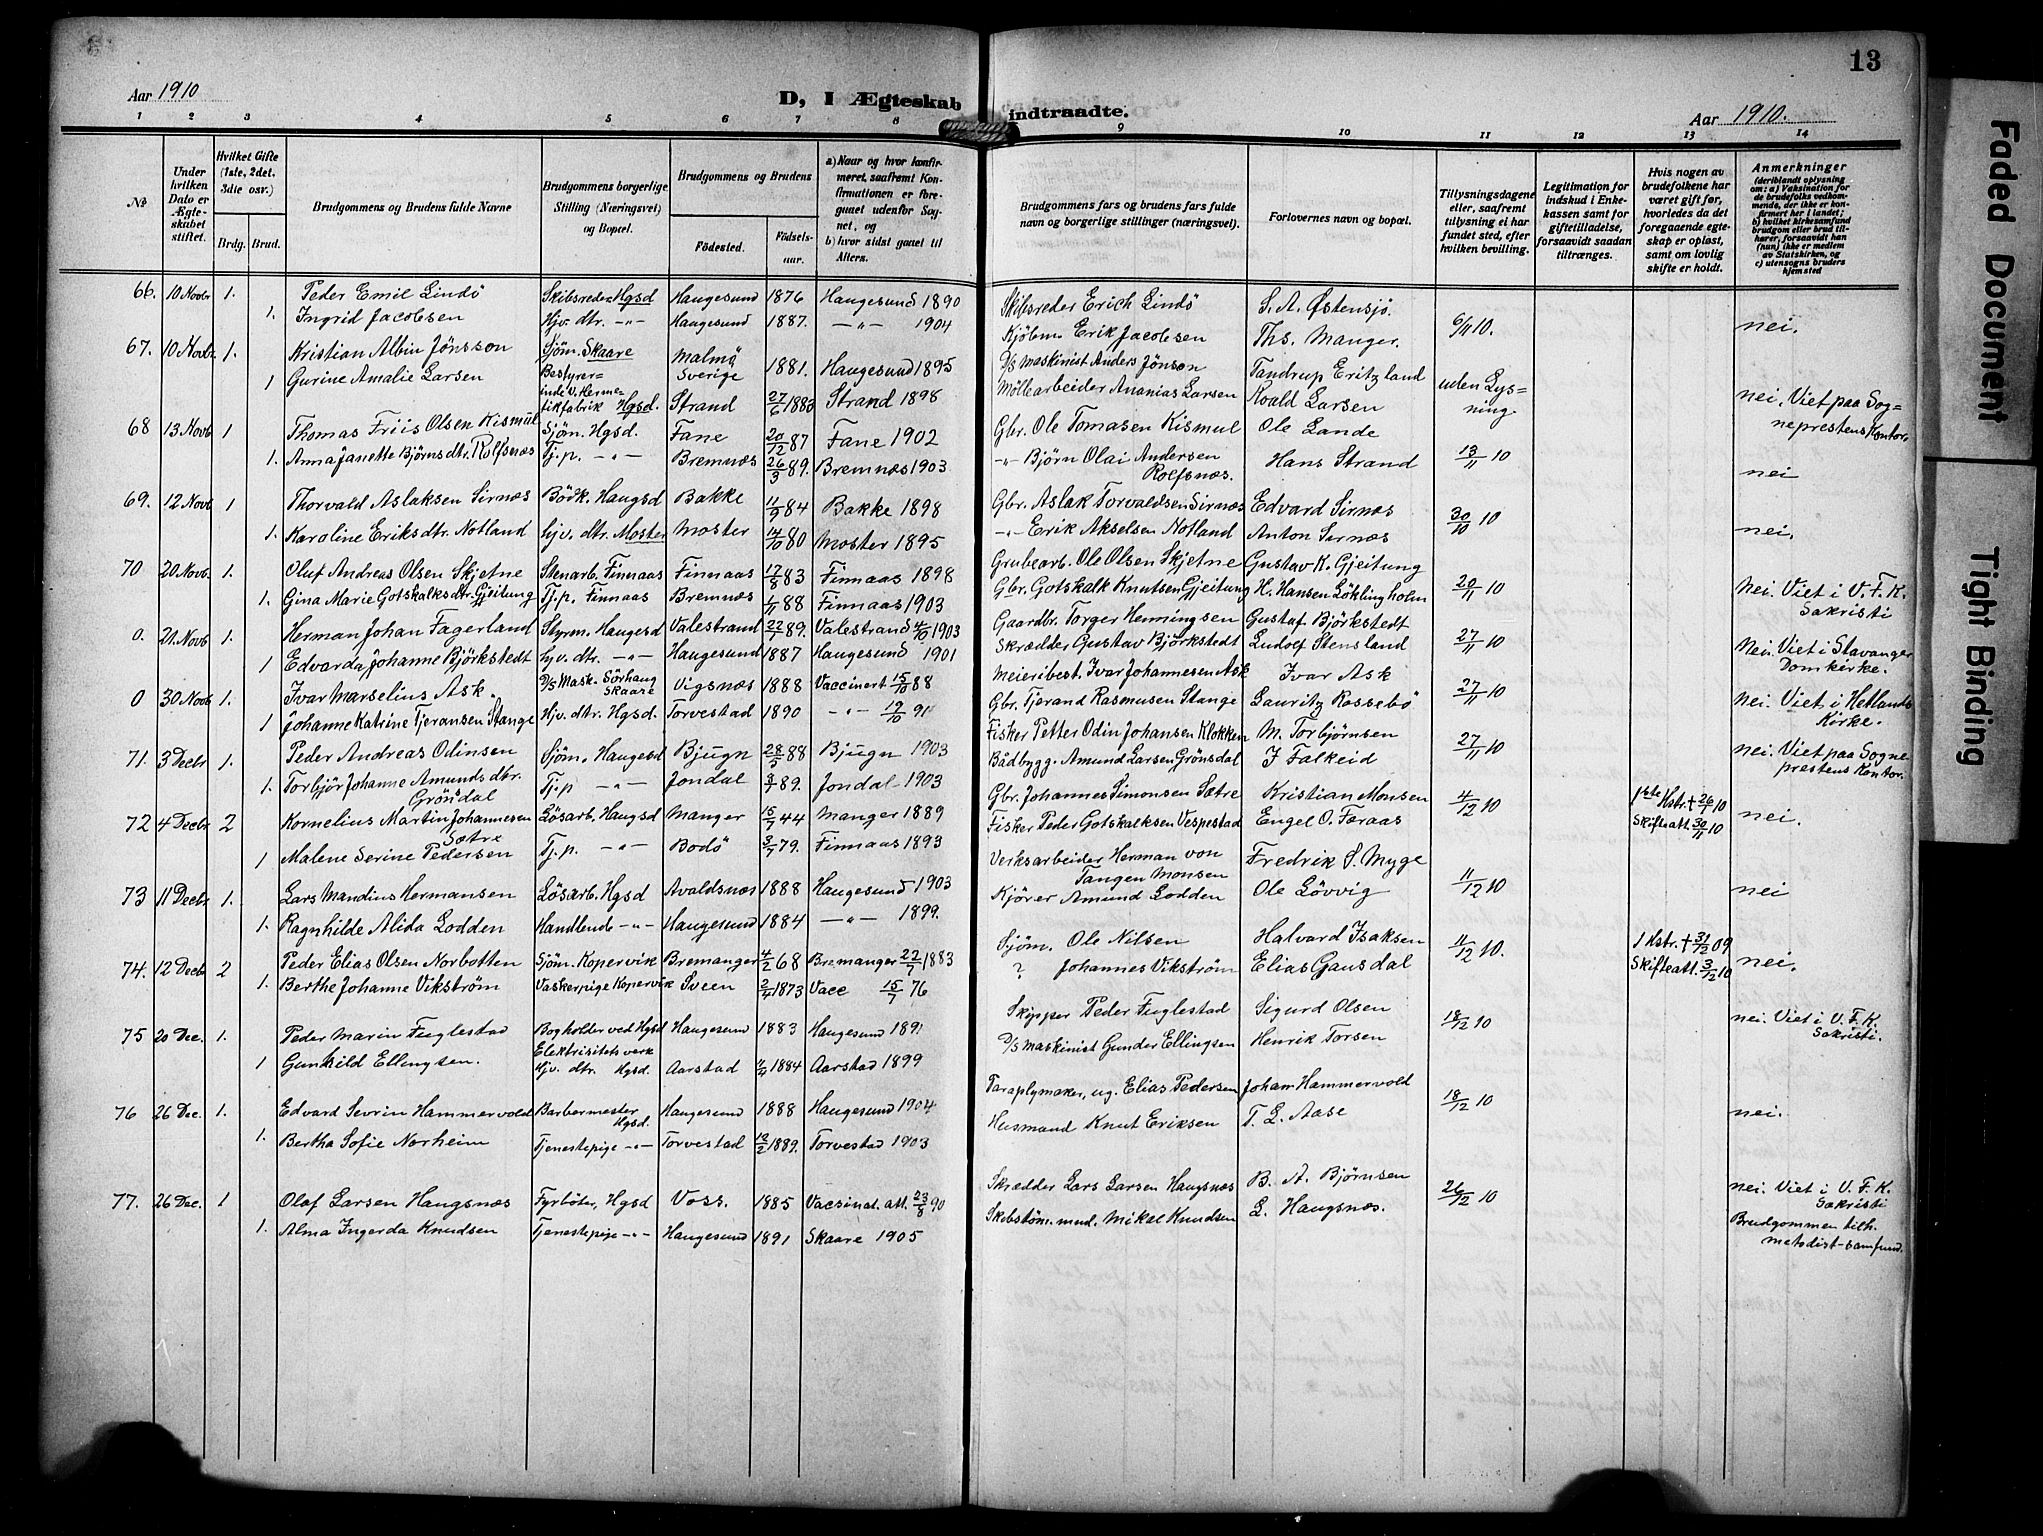 13
Aar 1910
D, I Ægteskab indtraadte.
Aar 1910.
1 2 3 4 5 6 7 8 9 10 11 12 13 14
No
Under hvilken Dato er Ægteskabet stiftet.
Hvilket Gifte (1ste, 2det, 3die osv.)
Brdg. Brud.
Brudgommens og Brudens fulde Navne
Brudgommens borgerlige Stilling (Næringsvei) og Bopæl.
Brudgommens og Brudens
Födested.
Födselsaar.
a) Naar og hvor konfirmeret, saafremt Konfirmationen er foregaaet udenfor Sognet, og
b) hvor sidst gaaet til Alters.
Brudgommens fars og brudens fars fulde navn og borgerlige stillinger (næringsvei).
Forlovernes navn og bopæl.
Tillysningsdagene eller, saafremt tillysning ei har fundet sted, efter hvilken bevilling.
Legitimation for indskud i Enkekassen samt for giftetilladelse, forsaavidt saadan tiltrænges.
Hvis nogen av brudefolkene har været gift før, hvorledes da det foregaaende egteskap er opløst, samt om lovlig skifte er holdt.
Anmerkninger
(deriblandt oplysning om: a) Vaksination for de brudefolks vedkommende, der ikke er konfirmert her i landet;
b) hvilket kirkesamfund brudgom eller brud tilhører, forsaavidt han (hun) ikke er medlem av Statskirken, og
c) utensogns bruders hjemsted
66. 10 Novbr 1. Peder Emil Lindö Skibsreder Hgsd Haugesund 1876 Haugesund 1890 Skibsreder Erich Lindö S. A. Østensjö. 6/11 10. nei.
1. Ingrid Jacobsen Hjv. dtr. -"- Haugesund 1887. -"- 1904 Kjöbm. Erik Jacobsen Ths. Manger.
67. 10 Novbr. 1. Kristian Albin Jönsson Sjöm. Skaare Malmö Sverige 1881. Haugesund 1895 D/S Maskinist Anders Jönson Tandrup Eritzland uden Lysning. nei. Viet paa Sogneprestens Kontor.
1 Gurine Amalie Larsen Bestyrerinde v. Hermetikfabrik Hgsd. Strand 27/6 1883 Strand 1898 Möllearbeider Ananias Larsen Roald Larsen
68 13 Novb 1 Thomas Friis Olsen Kismul Sjöm. Hgsd. Fane 20/12 87 Fane 1902 Gbr. Ole Tomasen Kismul Ole Lande 13/11 10 nei
1. Anna Janette Björnsdtr. Rolfsnæs Tj.p. -"- Bremnæs 26/3 89. Bremnæs 1903. -"- Bjørn Olai Andersen Rolfsnæs. Hans Strand
69. 12 Novb 1 Thorvald Aslaksen Sirnæs Bödk. Haugsd Bakke 11/9 84 Bakke 1898 Gbr. Aslak Torvaldsen Sirnæs Edvard Sirnæs 30/10 10 nei.
1. Karoline Eriksdtr. Notland hjv. dtr. Moster Moster 14/10 80 Moster 1895 -"- Erik Akselsen Notland Anton Sirnæs
70 20 Novb. 1. Oluf Andreas Olsen Skjetne Stenarb. Finnaas Finnaas 17/8 83 Finnaas 1898 Grubearb. Ole Olsen Skjetne Gustav K. Gjeitung 20/11 10 Nei. Viet i V. F. K. Sakristi
1. Gina Marie Gotskalksdtr. Gjeitung Tj.p. Finnaas Bremnæs 1/11 88 Finnaas 1903 Gbr. Gotskalk Knutsen Gjeitung H. Hansen Löklingholm
0. 21 Novb 1. Herman Johan Fagerland Styrm. Haugesd Valestrand 22/1 89. Valestrand 4/10 1903 Gaardbr. Torger Henningsen Gustaf Björkstedt 27/11 10 Nei. Viet i Stavanger Domkirke.
1 Edvarda Johanne Björkstedt hjv. dtr. -"- Haugesund 1887 Haugesund 1901 Skrædder Gustav Björkstedt Ludolf Stensland
0 30 Novb 1. Ivar Marselius Ask. D/S Mask. Sörhaug Skaare Vigsnæs 1888 Vaccinert 15/10 88 Meieribest. Ivar Johannesen Ask Ivar Ask 27/11 10 Nei. Viet i Hetlands Kirke.
1 Johanne Katrine Tjeransen Stange Hjv. dtr. Hgsd. Torvestad 1890 -"- 19/10 91 Gbr. Tjerand Rasmusen Stange Lauritz Rossebö
71. 3 Decbr 1. Peder Andreas Odinsen Sjöm. Haugesd Bjugn 28/5 88 Bjugn 1903 Fisker Petter Odin Johansen Klokken M. Torbjörnsen 27/11 10 nei. Viet paa Sogneprestens Kontor.
1. Torbjör Johanne Amundsdtr. Gröndal Tj.p -"- Jondal 89. Jondal 1903 Bådbygg. Amund Larsen Grönsdal J Falkeid
72 4 Decbr 2 Kornelius Martin Johannesen Sætre Lösarb. Haugsd Manger 15/7 44 Manger 1889 Gbr. Johannes Simonsen Sætre Kristian Monsen 4/12 10 1ste Hstr. + 26/1 10 Skifteatt. 30/11 10 nei.
1 Malene Serine Pedersen Tj.p. -"- Bodö 3/7 79. Finnaas 1893 Fisker Peder Gotskalksen Vespestad Engel O. Føraas
73 11 Decbr 1. Lars Mandius Hermansen Lösarb. Hgsd Avaldsnæs 1888 Haugesund 1903 Verksarbeider Herman von Tangen Monsen Fredrik S. Myge 11/12 10 nei
1. Ragnhilde Alida Lodden Handlende -"- Haugesund 1884 -"- 1899. Kjörer Amund Lodden Ole Lövvig
74. 12 Decbr 2 Peder Elias Olsen Norbotten Sjöm. Kopervik Bremanger 4/2 68 Bremanger 22/7 1883 Sjöm. Ole Nilsen Halvard Isaksen 11/12 10. 1 Hstr. + 31/12 09 Skifteatt. 3/12 10 nei.
1. Berthe Johanne Vikström Vaskerpige Kopervik Sveen 2/4 1873 Vacc 15/7 76 ? Johannes Vikström Elias Gausdal
75 20 Dec. 1. Peder Marin Fuglestad Bogholder ved Hgsd Elektrisitetsverk Haugesund 1883 Haugesund 1891 Skipper Peder Fuglestad Sigurd Olsen 18/12 10 nei. Viet i V. F. K. Sakristi.
1 Gunhild Ellingsen. Hjv. dtr. Hgsd. Aarstad 1884 Aarstad 1899 D/S Maskinist Gunder Ellingsen Henrik Torsen
76 26 Dec. 1. Edvard Sevrin Hammervold Barbermester Hgsd. Haugesund 1888 Haugesund 1904 Paraplymaker, ug. Elias Pedersen Johan Hammervold 18/12 10 nei.
1. Bertha Sofie Norheim Tjenestepige -"- Torvestad 12/2 1889. Torvestad 1903 Husmand Knut Eriksen T. L. Aase
77. 26 Dec. 1 Olaf Larsen Haugsnæs Fyrböter, Hgsd Voss. 1885 Vacsinat. att. 23/8 90 Skrædder Lars Larsen Haugsnæs B. A. Bjørnsen 26/12 10 nei. Viet i V. F. K. Sakristi
1. Alma Ingerda Knudsen Tjenestepige -"- Haugesund 1891 Skaare 1905 Skibstöm. mnd. Mikal Knudsen L. Haugsnæs. Brudgommen tilh. metodist-samfund.
Faded Document
Tight Binding